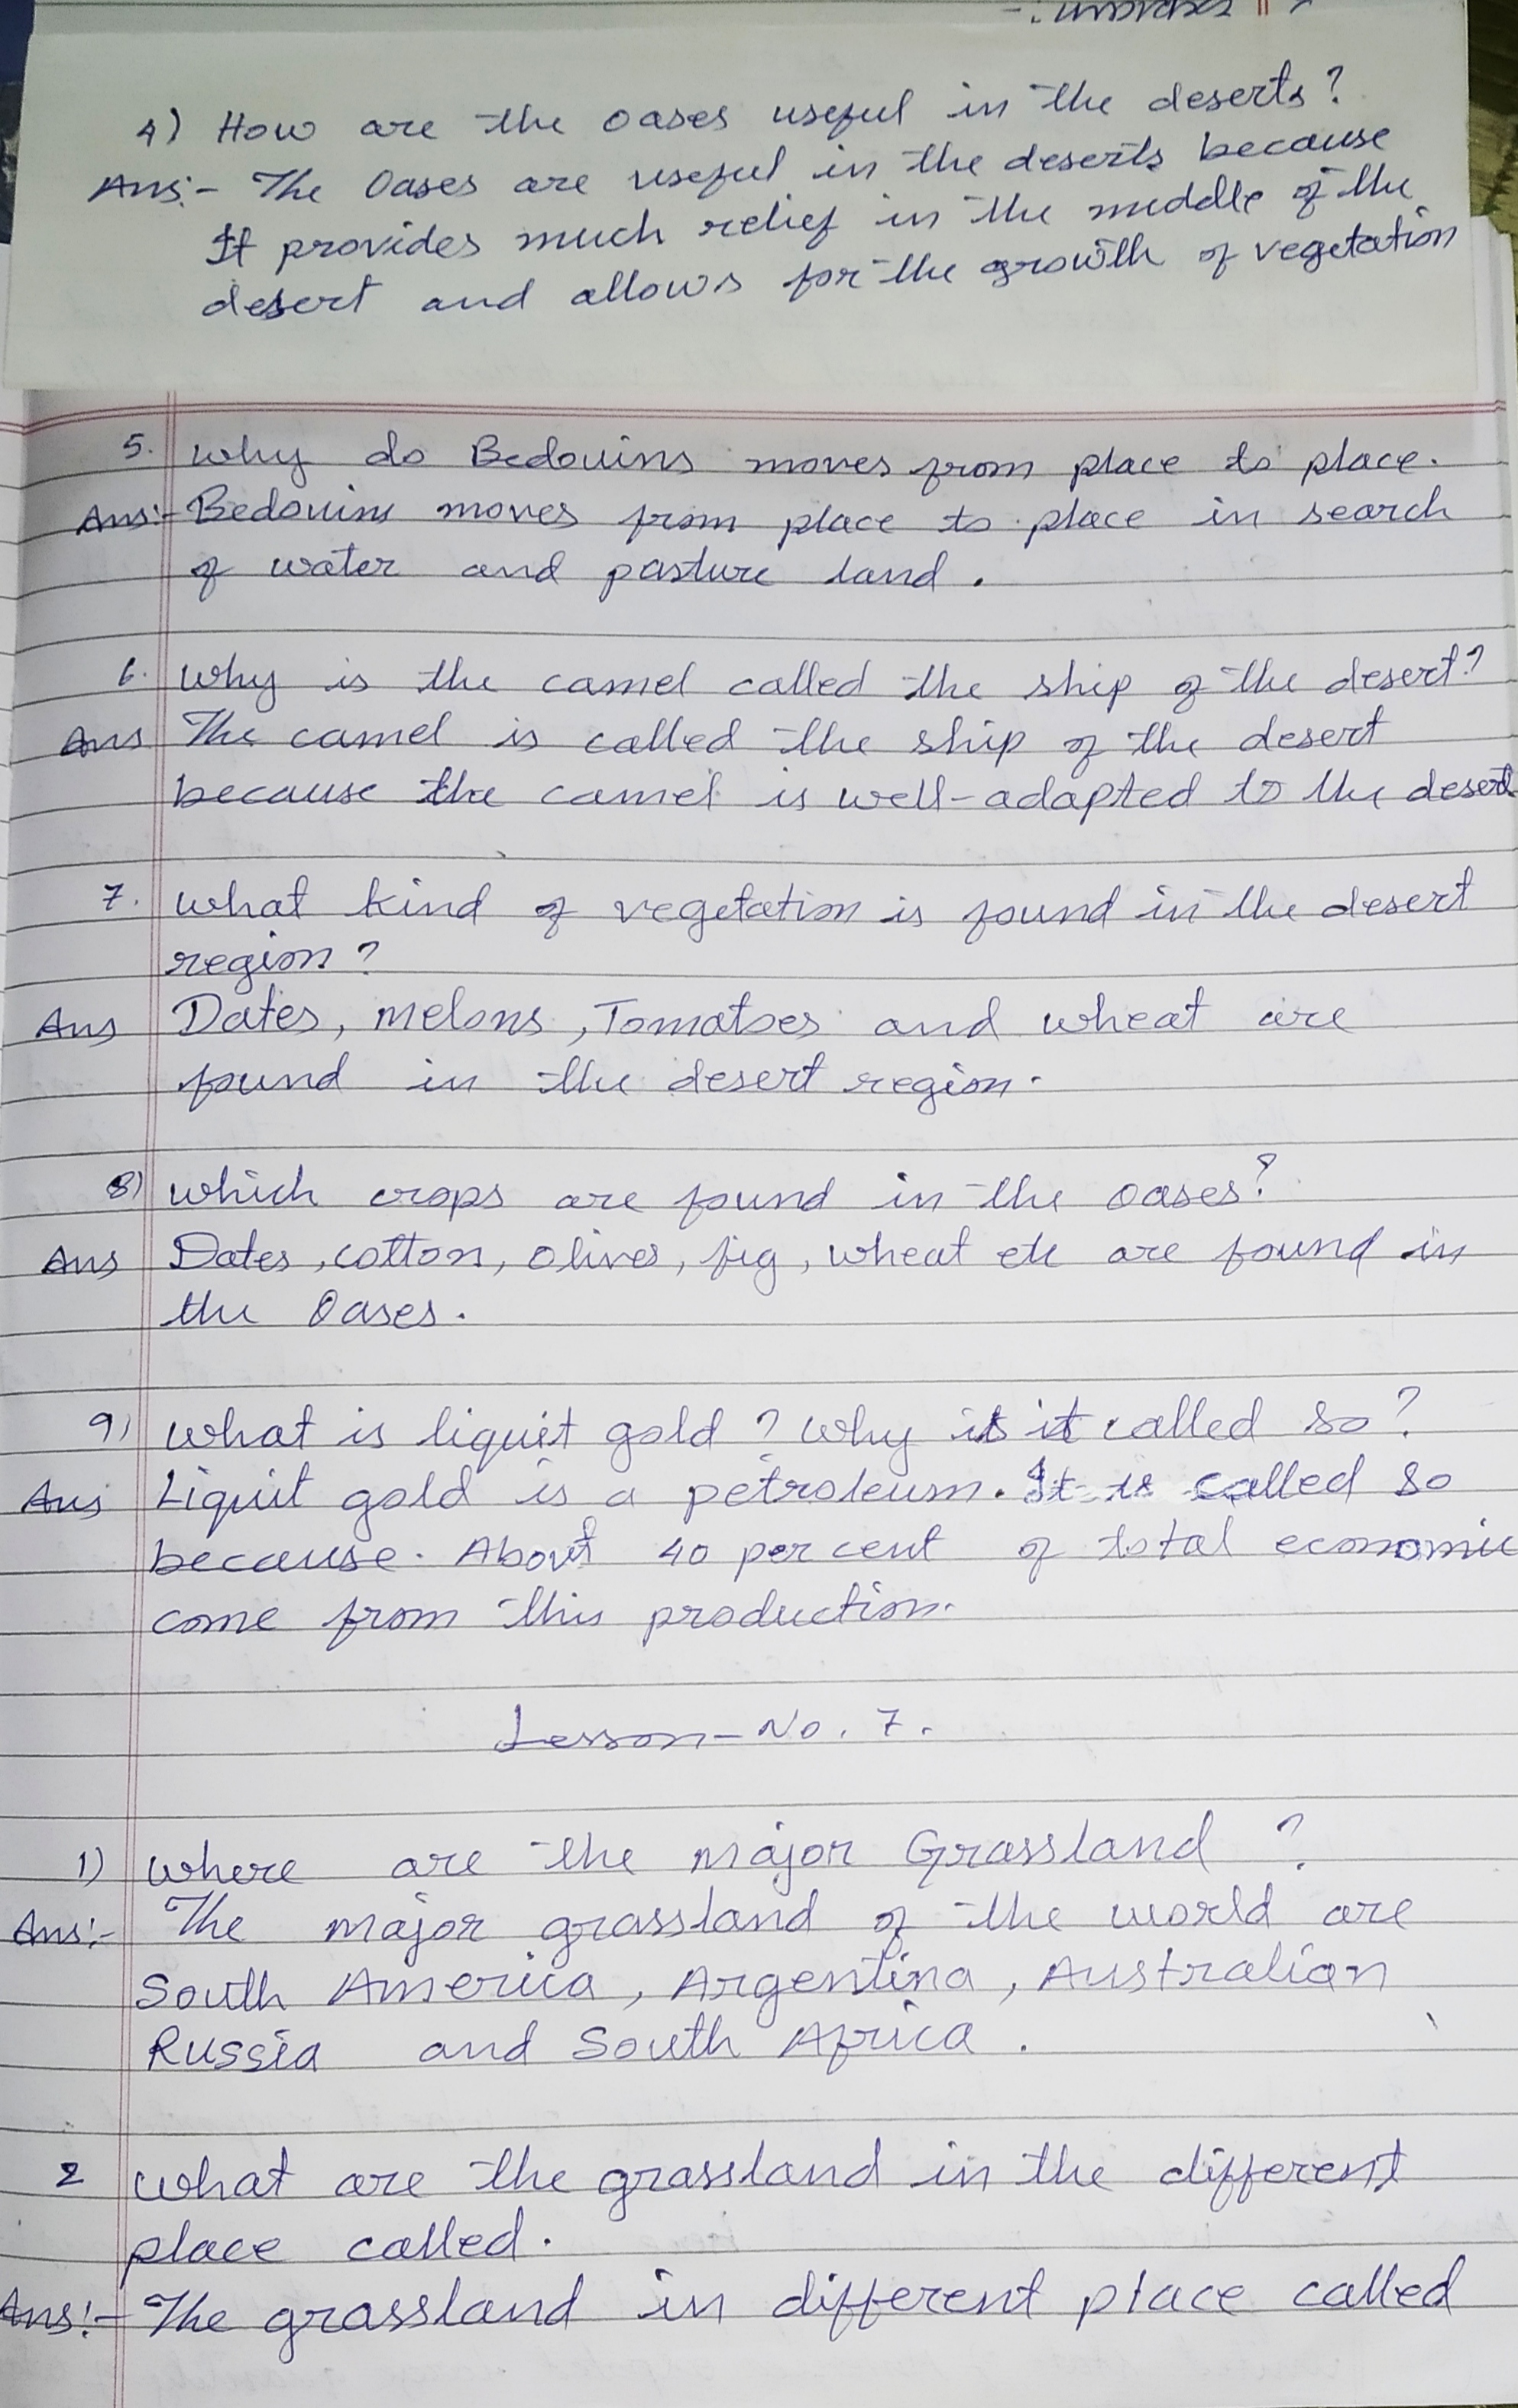 4) How are the oases useful in the deserts?
Ans:- The Oases are useful in the deserts because
It provides much relief in the middle of the
desert and allows for the growth of vegetation
5. Why do Bedouins moves from place to place.
Ans:- Bedouins moves from place to place in search
of water and pasture land.
6. Why is the camel called the ship of the desert?
Ans The camel is called the ship of the desert
because the camel is well-adapted to the desert
7. What kind of vegetation is found in the desert
region?
Ans Dates, Melons, Tomatoes and wheat are
found in the desert region.
8) Which crops are found in the oases?
Ans Dates, cotton, olives, fig, wheat etc are found in
the Oases.
9) What is liquit gold? Why is it called so?
Ans Liquit gold is a petroleum. It is called so
because. About 40 per cent of total economic
come from this production.
Lesson-No. 7.
1) where are the major Grassland?
Ans:- The major grassland of the world are
South America, Argentina, Australian
Russia and South Africa.
2 What are the grassland in the different
place called.
Ans:- The grassland in different place called